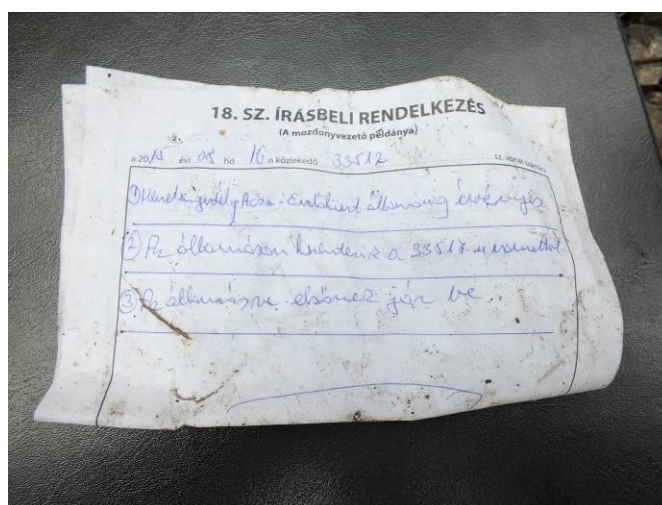 18. SZ. ÍRÁSBELI RENDELKEZÉS
(A mozdonyvezető példánya)
a 2015 évi 08 hó 16 n közlekedő 33512 sz. vonat számára
① Menetengedély Acsa - Erdőkürt állomásig érvényes
② Az állomáson keresztezik a 33517 sz vonattal
③ Az állomásra elsőnek jár be